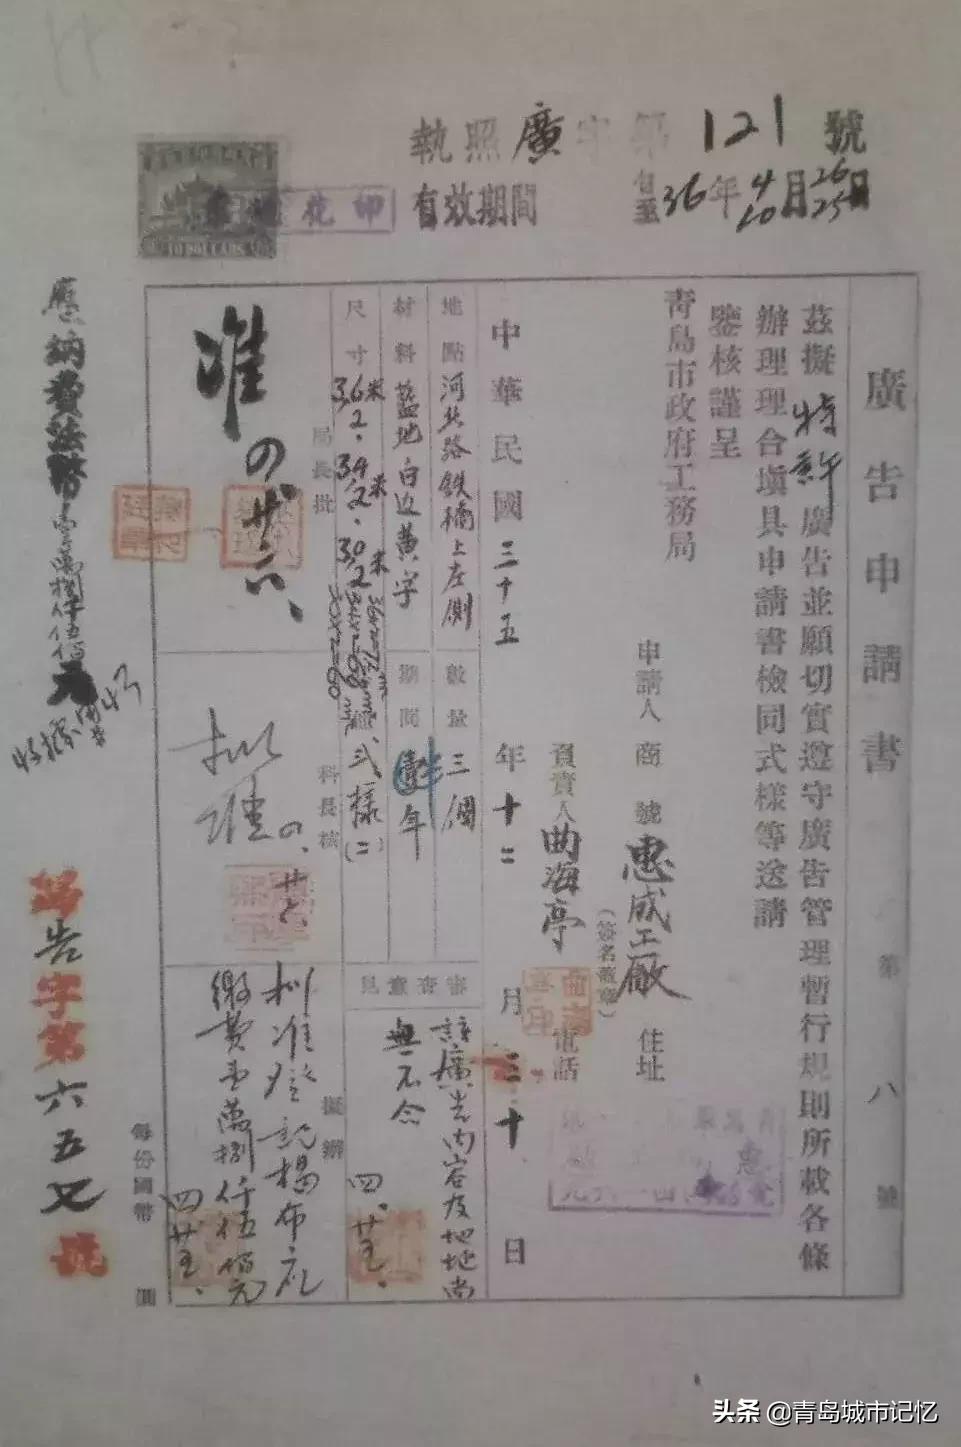 執照廣字第121號
有效期間 自至36年4月26日 10月25日
廣告申請書 第八號
茲擬特許廣告並願切實遵守廣告管理暫行規則所載各條
辦理理合填具申請書檢同式樣等送請
鑒核謹呈
青島市政府工務局
申請人 商號 惠成工廠 住址
(簽名蓋章)
負責人 曲海亭 電話
中華民國三十五年十二月三十日
地點 河北路鉄橋上左側 數量 三個
材料 藍地白边黃字 期間 年
尺寸 3.6米 2. 3.4米 2. 3.0米 2 式樣(二)
審查意見
該廣告内容及地址尚
無不合
四.廿五.
局長批
准
科長核
擬准
擬辦
擬准登記揭布在
繳費壹萬捌仟伍佰元
四廿五.
應納費法幣壹萬捌仟伍佰元
收據
告字第六五又號
每份國幣 圓
印花
10 DOLLARS
头条 @青岛城市记忆